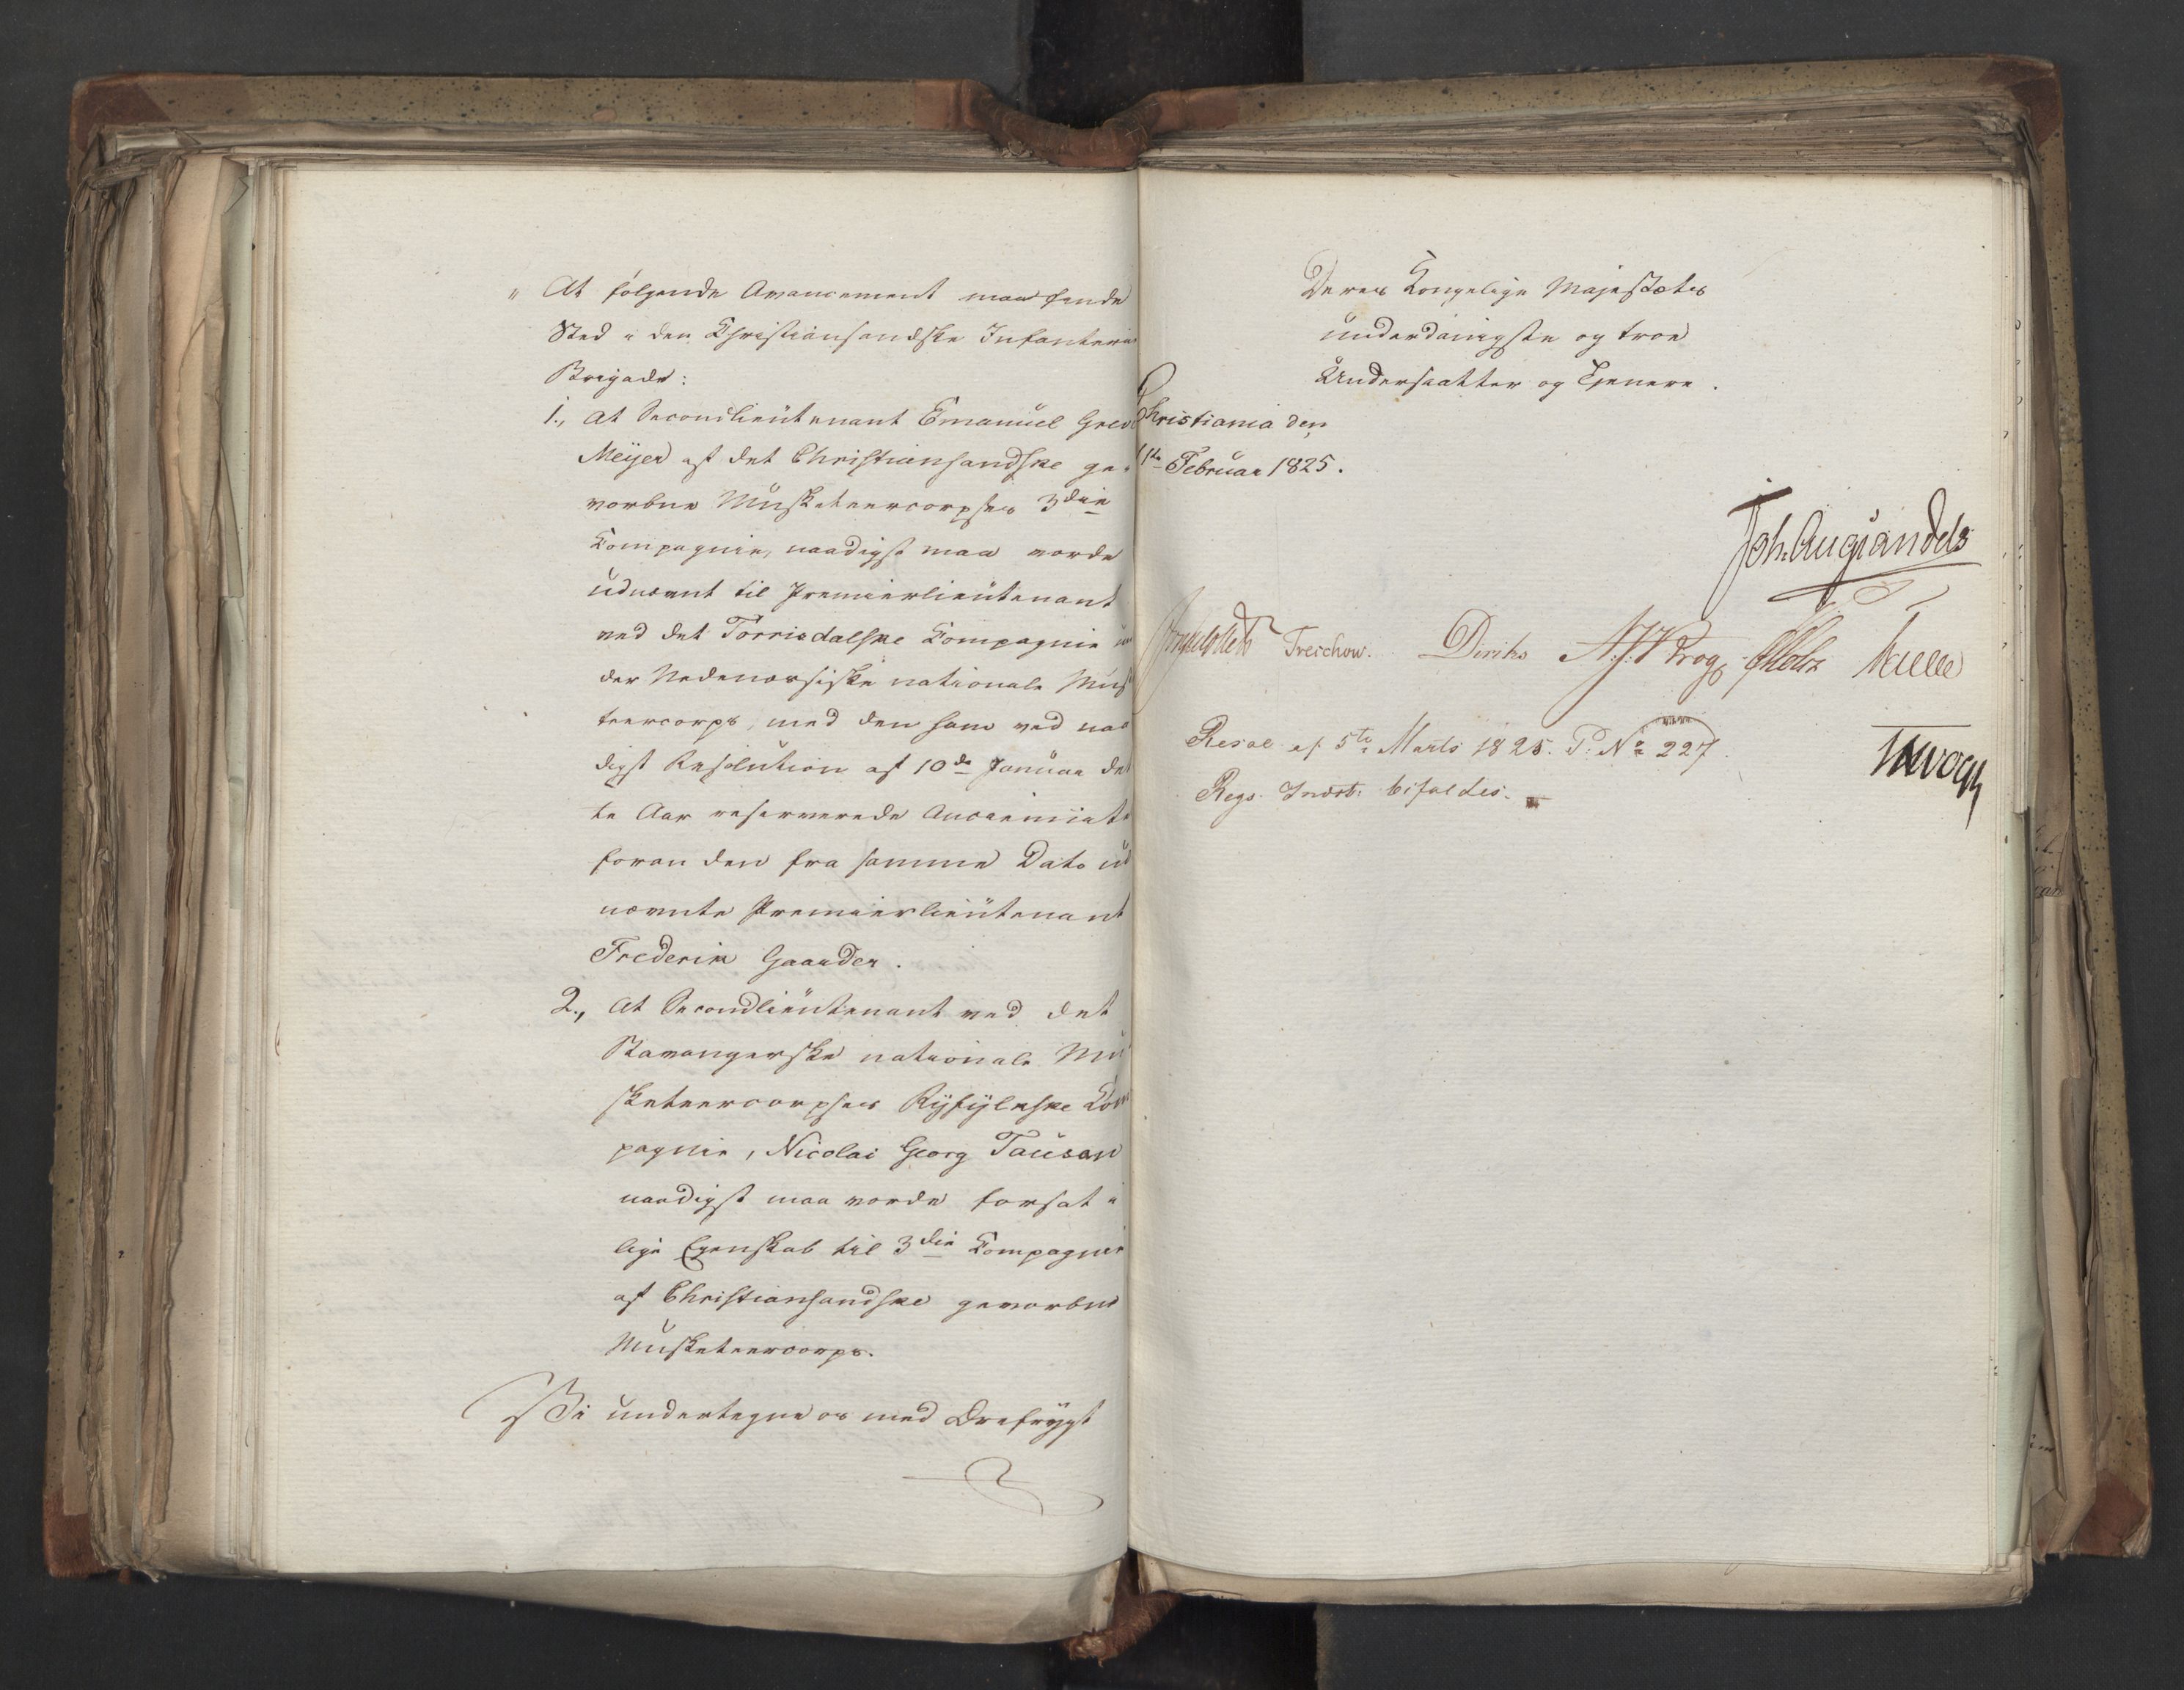 " At følgende Avancement maa finde
Sted i den Christiansandske Infanterie
Brigade:
1., At Secondlieutenant Emanuel Grev
Meijer af det Christiansandske ge-
vorbne Musketeercorpses 3die
Compagnie, naadigst maa vorde
udnævnt til Premierlieutenant
ved det Torrisdalske Compagnie un
der Nedenæsiske nationale Musk
teercorps, med den ham ved naa
digst Resolution af 10de Januar det
te Aar reserverede Anciennitet
foran den fra samme Dato ud
nævnte Premierlieutenant
Frederik Gaarder.
2., At Secondlieutenant ved det
Stavangerske nationale Mu
sketeercorpses Ryfylkske Com
pagnie, Nicolai Georg Tausan
naadigst maa vorde forsat i
lige Egenskab til 3die Compagnie
af Christiansandske gevorbne
Musketeercorps.
Vi undertegne os med Ærefrygt
Deres Kongelige Majestæts
underdanigste og troe
Undersaatter og Tjenere.
Christiania den
1ste Februar 1825.
Joh. Aug: Sandels
Treschow. Diriks Krog Motz
Resol. af 5te Marts 1825. P: No 227.
Regs. Indst: bifaldes.